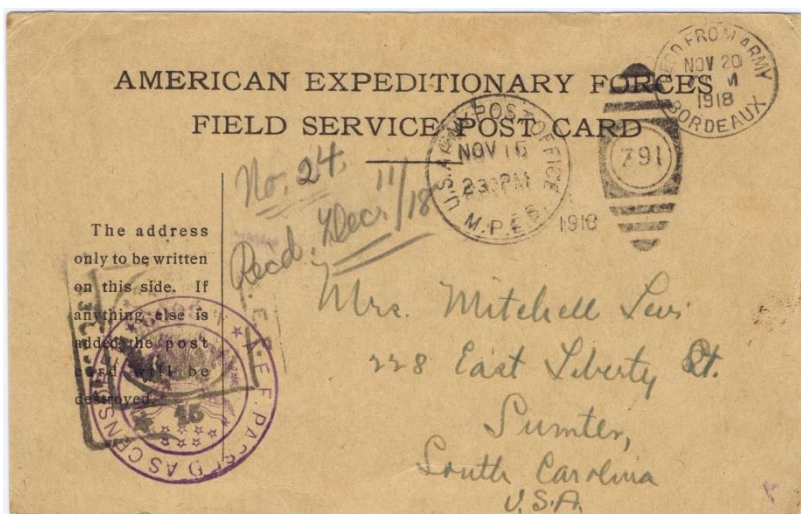 AMERICAN EXPEDITIONARY FORCES
FIELD SERVICE POST CARD
REC'D FROM ARMY
NOV 20
M
1918
BORDEAUX
U.S. ARMY POST OFFICE
NOV 16
230PM
M.P.E.S.
1918
791
No. 24.
Recd. Dec. 11/18
The address
only to be written
on this side. If
anything else is
added, the post
card will be
destroyed.
A.E.F. PASSED AS CENSORED
Mrs. Mitchell Levi
228 East Liberty St.
Sumter,
South Carolina
U.S.A.